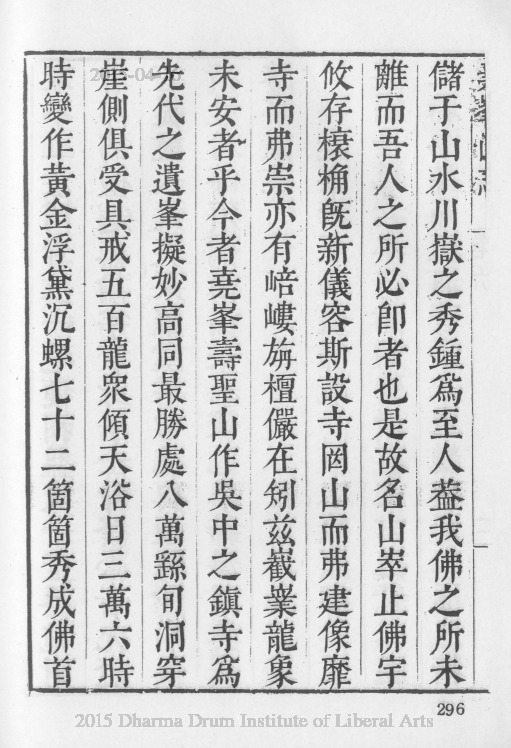 儲于山水川嶽之秀鍾爲至人葢我佛之所未
離而吾人之所必卽者也是故名山崒止佛宇
攸存榱桷旣新儀容斯設寺罔山而弗建像靡
寺而弗崇亦有㟝嶁旃檀儼在矧兹嶻嶪龍象
未安者乎今者堯峯壽聖山作吳中之鎮寺爲
先代之遺峯擬妙高同最勝處八萬繇旬洞穿
崖側俱受具戒五百龍衆傾天浴日三萬六時
時變作黃金浮黛沉螺七十二箇箇秀成佛首
296
2015 Dharma Drum Institute of Liberal Arts